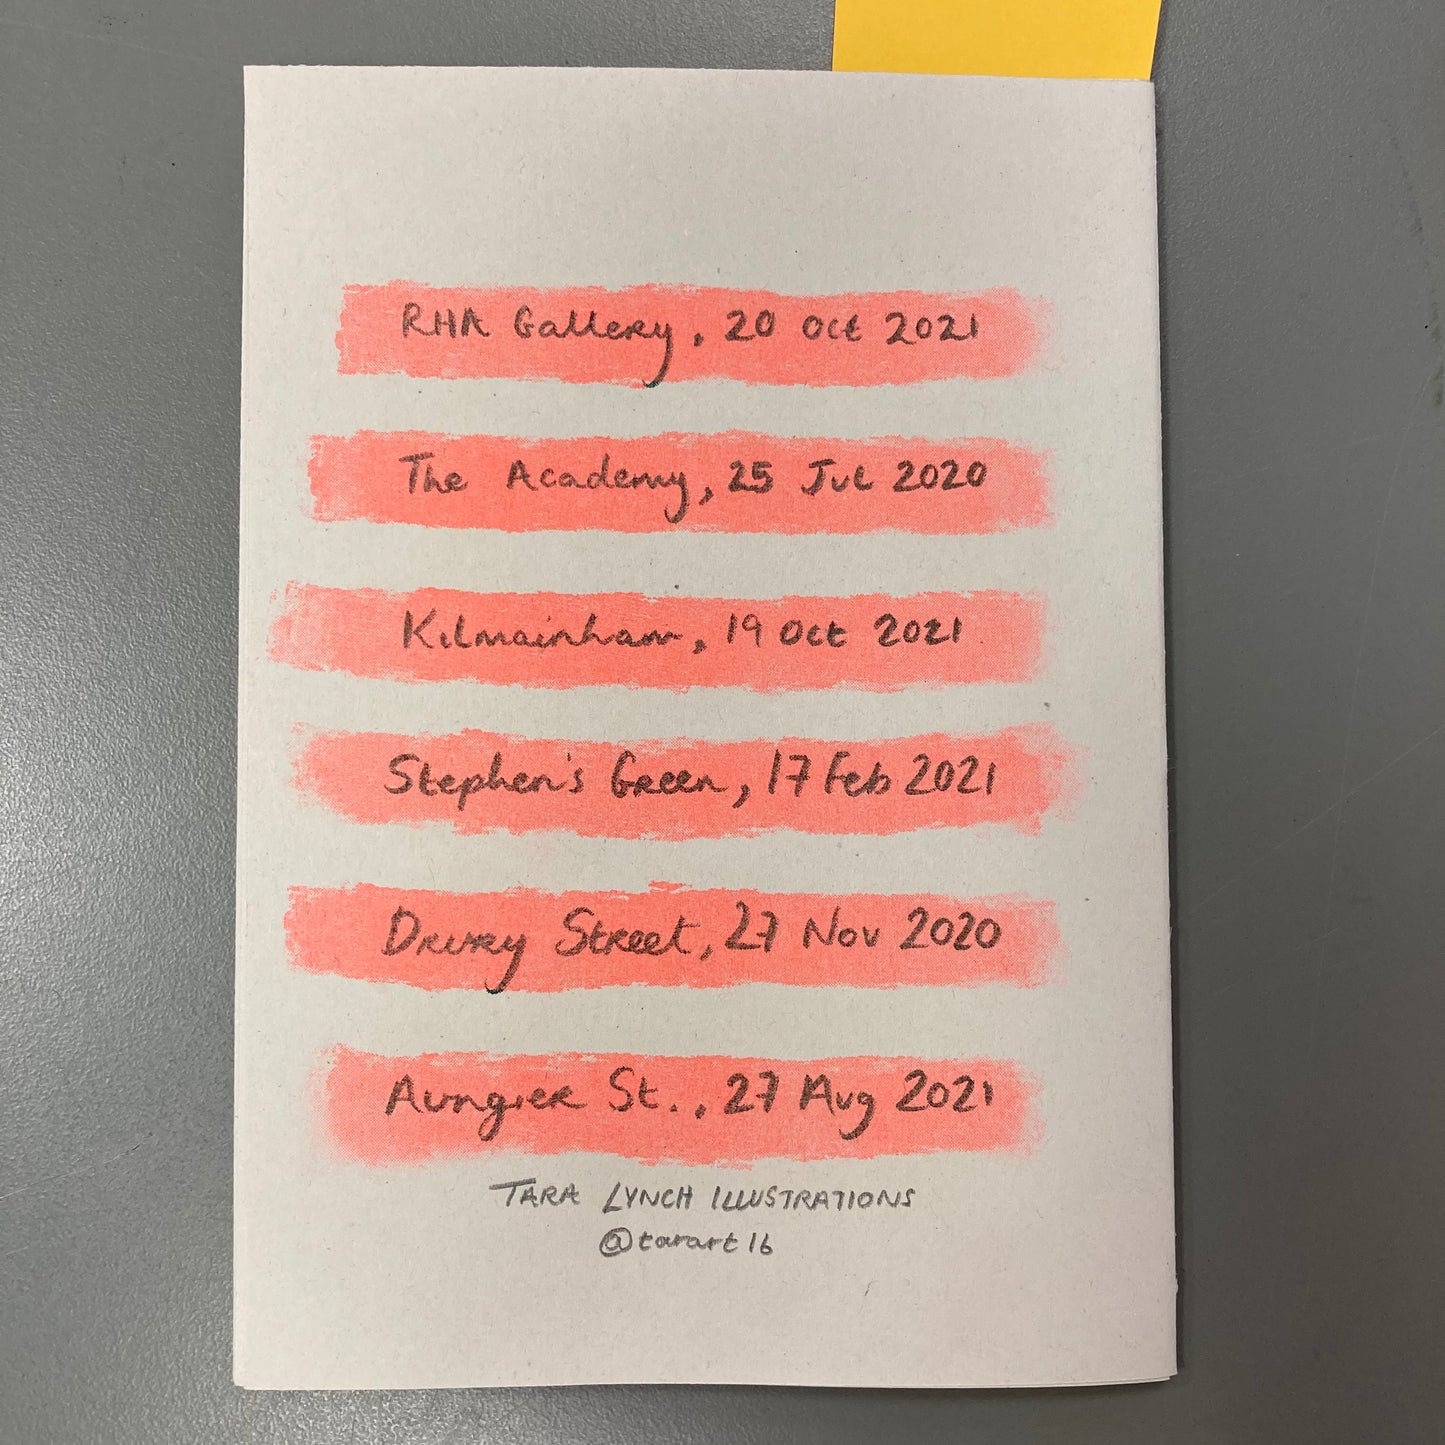 RHA Gallery, 20 Oct 2021
The Academy, 25 Jul 2020
Kilmainham, 19 Oct 2021
Stephen's Green, 17 Feb 2021
Drury Street, 27 Nov 2020
Aungier St., 27 Aug 2021
TARA LYNCH ILLUSTRATIONS
@tarart16